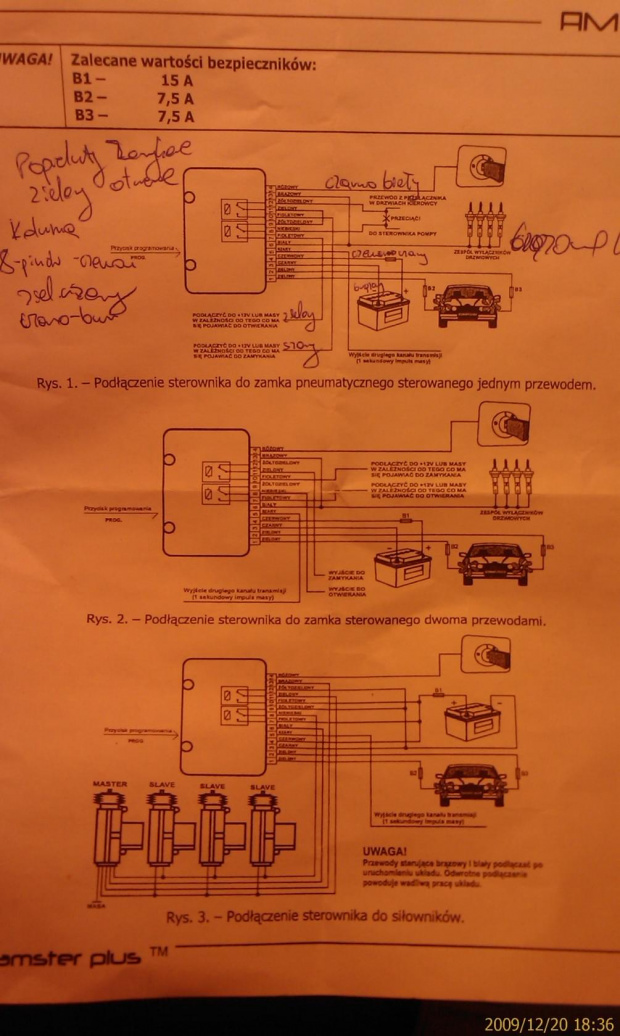 AM
UWAGA!
Zalecane wartości bezpieczników:
B1 – 15 A
B2 – 7,5 A
B3 – 7,5 A
zielony
czarno biały
RÓŻOWY
BRĄZOWY
ŻÓŁTOZIELONY
ZIELONY
FIOLETOWY
ŻÓŁTOZIELONY
NIEBIESKI
FIOLETOWY
BIAŁY
SZARY
CZERWONY
CZARNY
ZIELONY
ZIELONY
PRZEWÓD Z PRZEŁĄCZNIKA
W DRZWIACH KIEROWCY
PRZECIĄĆ!
DO STEROWNIKA POMPY
ZESPÓŁ WYŁĄCZNIKÓW
DRZWIOWYCH
Przycisk programowania
PROG.
B2
B3
PODŁĄCZYĆ DO +12V LUB MASY
W ZALEŻNOŚCI OD TEGO CO MA
SIĘ POJAWIAĆ DO OTWIERANIA
PODŁĄCZYĆ DO +12V LUB MASY
W ZALEŻNOŚCI OD TEGO CO MA
SIĘ POJAWIAĆ DO ZAMYKANIA
Wyjście drugiego kanału transmisji
(1 sekundowy impuls masy)
Rys. 1. – Podłączenie sterownika do zamka pneumatycznego sterowanego jednym przewodem.
RÓŻOWY
BRĄZOWY
ŻÓŁTOZIELONY
ZIELONY
FIOLETOWY
ŻÓŁTOZIELONY
NIEBIESKI
FIOLETOWY
BIAŁY
SZARY
CZERWONY
CZARNY
ZIELONY
ZIELONY
PODŁĄCZYĆ DO +12V LUB MASY
W ZALEŻNOŚCI OD TEGO CO MA
SIĘ POJAWIAĆ DO ZAMYKANIA
PODŁĄCZYĆ DO +12V LUB MASY
W ZALEŻNOŚCI OD TEGO CO MA
SIĘ POJAWIAĆ DO OTWIERANIA
ZESPÓŁ WYŁĄCZNIKÓW
DRZWIOWYCH
Przycisk programowania
PROG.
B1
B2
B3
WYJŚCIE DO
ZAMYKANIA
WYJŚCIE DO
OTWIERANIA
Wyjście drugiego kanału transmisji
(1 sekundowy impuls masy)
Rys. 2. – Podłączenie sterownika do zamka sterowanego dwoma przewodami.
RÓŻOWY
BRĄZOWY
ŻÓŁTOZIELONY
ZIELONY
FIOLETOWY
ŻÓŁTOZIELONY
NIEBIESKI
FIOLETOWY
BIAŁY
SZARY
CZERWONY
CZARNY
ZIELONY
ZIELONY
B1
Przycisk programowania
PROG
B2
B3
MASTER SLAVE SLAVE SLAVE
Wyjście drugiego kanału transmisji
(1 sekundowy impuls masy)
UWAGA!
Przewody sterujące brązowy i biały podłączać po
uruchomieniu układu. Odwrotne podłączenie
powoduje wadliwą pracę układu.
MASA
Rys. 3. – Podłączenie sterownika do siłowników.
amster plus ™
2009/12/20 18:36